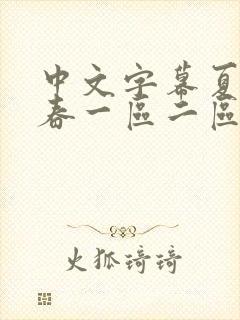 中文字幕夏
春一區二區
火狐琦琦